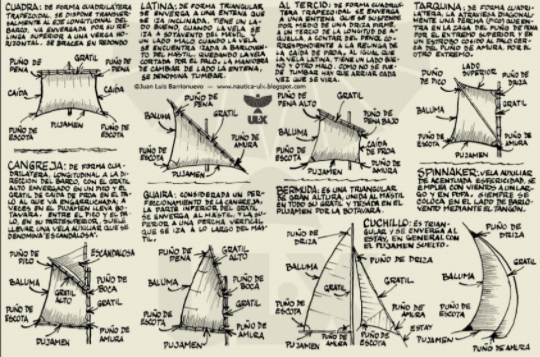 CUADRA: DE FORMA CUADRILÁTERA
TRAPEZOIDAL, SE DISPONE TRANSVER-
SALMENTE A LA DIRECCIÓN DEL
BARCO, VA ENVERGADA POR SU RE-
LINGA SUPERIOR A UNA VERGA HO-
RIZONTAL. SE BRACEA EN REDONDO
PUÑO DE PENA
GRATIL
CAIDA
CAIDA
PUÑO DE ESCOTA
PUJAMEN
PUÑO DE ESCOTA
LATINA: DE FORMA TRIANGULAR
SE ENVERGA A UNA ENTENA QUE
SE IZA INCLINADA. TIENE UN LA-
DO BUENO, CUANDO LA VELA SE
IZA A SOTAVENTO DEL MASTIL Y
UN LADO MALO CUANDO LA VELA
SE ENCUENTRA IZADA A BARLOVEN-
TO DEL MASTIL, QUEDANDO LA VELA
CORTADA POR EL PALO. LA MANIOBRA
DE CAMBIAR DE LADO LA ENTENA,
SE DENOMINA TUMBAR.
©Juan Luis Barrionuevo — www.nautica-ulx.blogspot.com
ULX
PUÑO DE PENA
GRATIL
BALUMA
PUÑO DE ESCOTA
PUJAMEN
PUÑO DE AMURA
AL TERCIO: DE FORMA CUADRILÁ-
TERA TRAPEZOIDAL SE ENVERGA A
UNA ENTENA QUE SE SUSPENDE
POR MEDIO DE UNA DRIZA FIRME,
UN TERCIO DE LA LONGITUD DE A-
QUELLA A CONTAR DEL PENOL CO-
RRESPONDIENTE A LA RELINGA DE
LA CAIDA DE PROA. AL IGUAL QUE
LA VELA LATINA, TIENE UN LADO BUE-
NO Y OTRO MALO. COMO NO SE PUE-
DE TUMBAR HAY QUE ARRIAR CADA
VEZ QUE SE VIRA.
PUÑO DE PENA ALTO
GRATIL
PUÑO DE PENA BAJO
BALUMA
CAIDA DE PROA
PUÑO DE ESCOTA
PUJAMEN
PUÑO DE AMURA
TARQUINA: DE FORMA CUADRILA-
MEDIANTE UNA PERCHA
POR EL EXTREMO SUPERIOR, Y EN
UN ESTROBO COSIDO AL PALO CER-
CA DEL PUÑO DE AMURA, POR EL
OTRO EXTREMO.
LADO SUPERIOR
PUÑO DE PICO
PUÑO DE DRIZA
BALUMA
GRATIL
PUÑO DE ESCOTA
PUJAMEN
PUÑO DE AMURA
CANGREJA: DE FORMA CUA-
DRILATERA, LONGITUDINAL A LA DI-
RECCIÓN DEL BARCO, CON EL GRATIL
ALTO ENVERGADO EN UN PICO Y EL
GRATIL DE CAIDA DE PROA EN EL PA-
LO AL QUE VA ENGARGANTADO, A
VECES EN EL PUJAMEN LLEVA BO-
TAVARA. ENTRE EL PICO Y EL PA-
LO, EN SU PARTE SUPERIOR, SUELE
LLEVAR UNA VELA AUXILIAR QUE SE
DENOMINA "ESCANDALOSA".
PUÑO DE PICO
ESCANDALOSA
BALUMA
GRATIL ALTO
PUÑO DE BOCA
GRATIL
PUÑO DE ESCOTA
PUJAMEN
PUÑO DE AMURA
GUAIRA: CONSIDERADA UN PER-
FECCIONAMIENTO DE LA CANGREJA.
LA PARTE INFERIOR DEL GRATIL
SE ENVERGA AL MASTIL, Y LA SUPE-
RIOR A UNA PERCHA VERTICAL
QUE SE IZA A LO LARGO DEL MAS-
TIL.
PUÑO DE PENA
GRATIL ALTO
BALUMA
PUÑO DE BOCA
GRATIL
PUÑO DE ESCOTA
PUJAMEN
PUÑO DE AMURA
BERMUDA: ES UNA TRIANGULAR
DE GRAN ALTURA, UNIDA AL MASTIL
EN TODO SU GRATIL Y TESADA EN EL
PUJAMEN POR LA BOTAVARA.
CUCHILLO: ES TRIAN-
GULAR Y SE ENVERGA AL
ESTAY, EN GENERAL CON
EL PUJAMEN SUELTO.
PUÑO DE DRIZA
BALUMA
GRATIL
PUÑO DE ESCOTA
PUJAMEN
PUÑO DE AMURA
GRATIL
PUÑO DE AMURA
ESTAY
SPINNAKER: VELA AUXILIAR
DE ACENTUADA ESFERICIDAD, SE
EMPLEA CON VIENTOS A UN LAR-
GO Y EN POPA, SIEMPRE SE
COLOCA EN EL LADO DE BARLO-
VENTO MEDIANTE EL TANGON.
PUÑO DE DRIZA
GRATIL
BALUMA
PUÑO DE ESCOTA
PUJAMEN
PUÑO DE AMURA